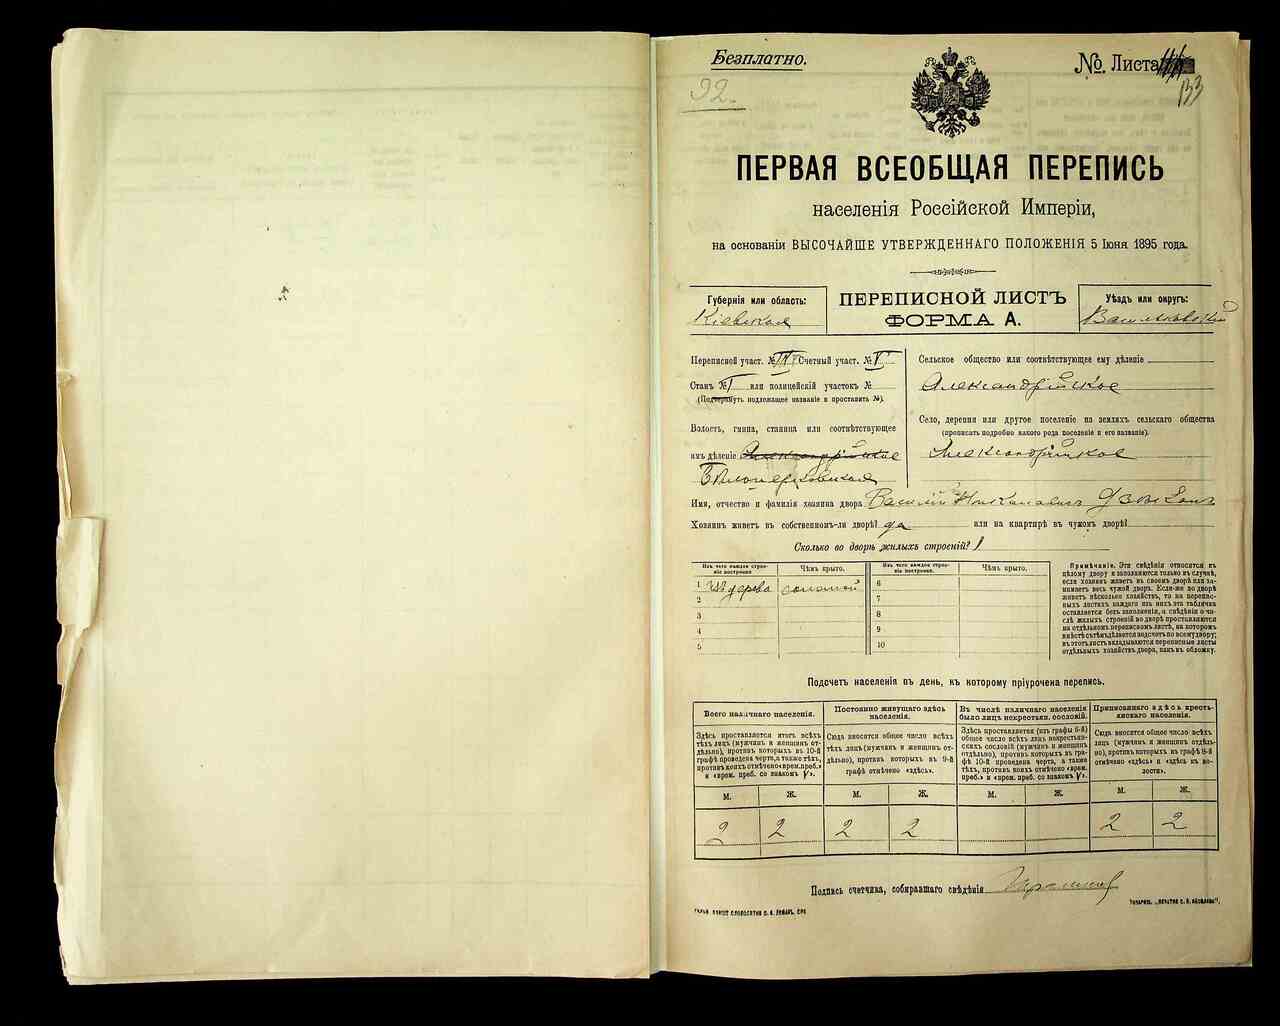 Безплатно.
№. Листа
133
92.
ПЕРВАЯ ВСЕОБЩАЯ ПЕРЕПИСЬ
населенія Россійской Имперіи,
на основаніи ВЫСОЧАЙШЕ УТВЕРЖДЕННАГО ПОЛОЖЕНІЯ 5 Іюня 1895 года.
Губернія или область:
Кіевская
ПЕРЕПИСНОЙ ЛИСТЪ
ФОРМА А.
Уѣздъ или округъ:
Васильковскій
Переписной участ. № Счетный участ. №
Станъ № I или полицейскій участокъ №
(Подчеркнуть надлежащее названіе и проставить №).
Волость, гмина, станица или соотвѣтствующее
имъ дѣленіе Александрійское
Бѣлоцерковская
Сельское общество или соотвѣтствующее ему дѣленіе
Александрійское
Село, деревня или другое поселеніе на земляхъ сельскаго общества
(прописать подробно какого рода поселеніе и его названіе).
Александрійское
Имя, отчество и фамилія хозяина двора Василій
Хозяинъ живетъ въ собственномъ-ли дворѣ? да или на квартирѣ въ чужомъ дворѣ?
Сколько во дворѣ жилыхъ строеній? 1
Изъ чего каждое строеніе построено. Чѣмъ крыто. Изъ чего каждое строеніе построено. Чѣмъ крыто.
1 изъ дерева соломой 6
2 7
3 8
4 9
5 10
Примѣчаніе. Эти свѣдѣнія относятся къ
цѣлому двору и заполняются только въ случаѣ,
если хозяинъ живетъ въ своемъ дворѣ или за-
нимаетъ весь чужой дворъ. Если-же во дворѣ
живетъ нѣсколько хозяйствъ, то на перепис-
ныхъ листахъ каждаго изъ нихъ эта табличка
оставляется безъ заполненія, а свѣдѣнія о чи-
слѣ жилыхъ строеній во дворѣ проставляются
на отдѣльномъ переписномъ листѣ, на которомъ
вмѣстѣ съ тѣмъ дѣлается подсчетъ по всему двору;
въ этотъ листъ вкладываются переписные листы
отдѣльныхъ хозяйствъ двора, какъ въ обложку.
Подсчетъ населенія въ день, къ которому пріурочена перепись.
Всего наличнаго населенія.
Здѣсь проставляется итогъ всѣхъ
тѣхъ лицъ (мужчинъ и женщинъ от-
дѣльно), противъ которыхъ въ 10-й
графѣ проведена черта, а также тѣхъ,
противъ коихъ отмѣчено «врем. преб.»
и «врем. преб. со знакомъ V».
Постоянно живущаго здѣсь
населенія.
Сюда вносится общее число всѣхъ
тѣхъ лицъ (мужчинъ и женщинъ от-
дѣльно), противъ которыхъ въ 9-й
графѣ отмѣчено «здѣсь».
Въ числѣ наличнаго населенія
было лицъ некрестьян. сословій.
Здѣсь проставляется (изъ графы 8-й)
общее число всѣхъ лицъ некрестьян-
скихъ сословій (мужчинъ и женщинъ
отдѣльно), противъ которыхъ въ гра-
фѣ 10-й проведена черта, а также
тѣхъ, противъ коихъ отмѣчено «врем.
преб.» и «врем. преб. со знакомъ V».
Приписаннаго здѣсь кресть-
янскаго населенія.
Сюда вносится общее число всѣхъ
лицъ (мужчинъ и женщинъ отдѣль-
но), противъ которыхъ въ графѣ 8-й
отмѣчено «здѣсь» и «здѣсь въ во-
лости».
М. Ж. М. Ж. М. Ж. М. Ж.
2 2 2 2 2 2
Подпись счетчика, собиравшаго свѣдѣнія